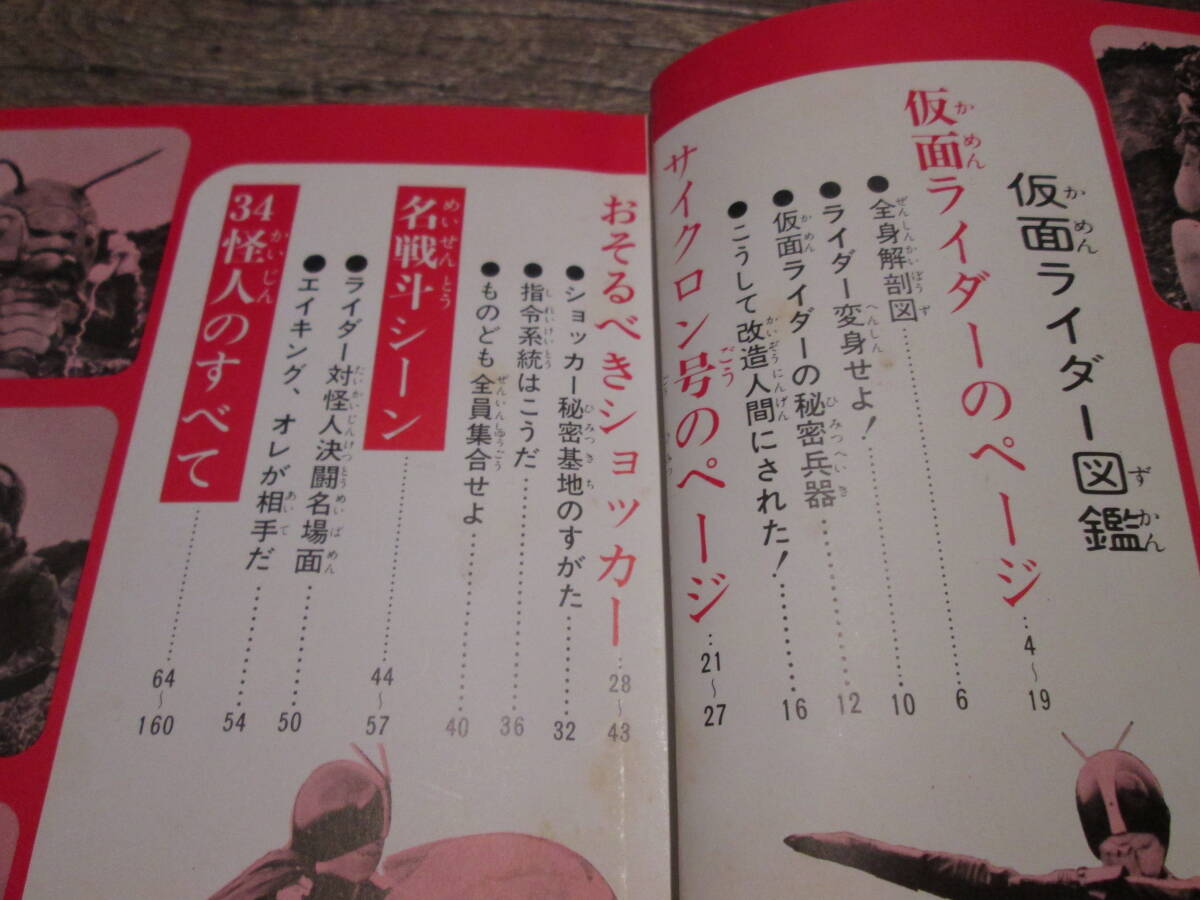 仮面ライダー図鑑
仮面ライダーのページ……4〜19
●全身解剖図……6
●ライダー変身せよ！……10
●仮面ライダーの秘密兵器……12
●こうして改造人間にされた！……16
サイクロン号のページ……21〜27
おそるべきショッカー……28〜43
●ショッカー秘密基地のすがた……32
●指令系統はこうだ……36
●ものども全員集合せよ……40
名戦斗シーン……44〜57
●ライダー対怪人決闘名場面……50
●エイキング、オレが相手だ……54
34怪人のすべて……64〜160